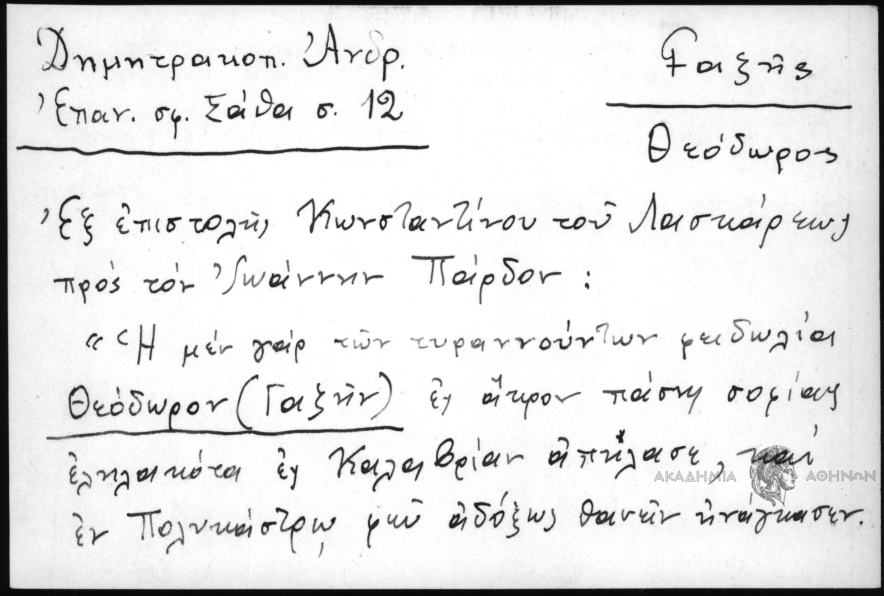 Δημητρακοπ. Ἀνδρ.
Ἐπαν. σφ. Σάθα σ. 12
Γαζῆς
Θεόδωρος
Ἐξ ἐπιστολῆς Κωνσταντίνου τοῦ Λασκάρεως
πρός τόν Ἰωάννην Πάρδον :
« Ἡ μέν γάρ τῶν τυραννούντων φειδωλία
Θεόδωρον (Γαζῆν) ἐς ἄκρον πάσης σοφίας
ἐληλακότα ἐς Καλαβρίαν ἀπήλασε, καί
ἐν Πολυκάστρῳ φεῦ ἀδόξως θανεῖν ἠνάγκασεν.
ΑΚΑΔΗΜΙΑ ΑΘΗΝΩΝ